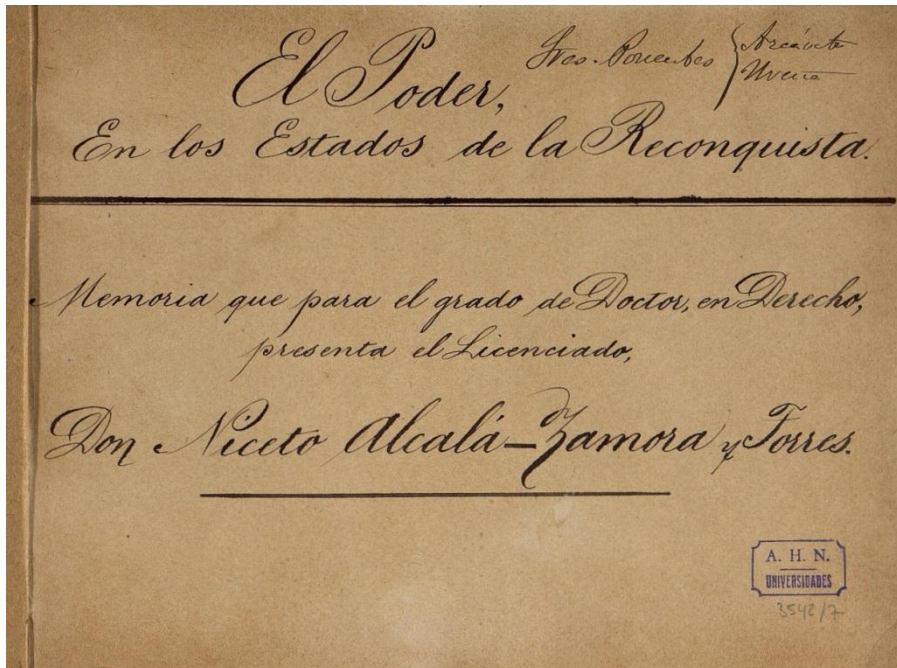 El Poder,
Sres. Ponentes
Azcárate
Ureña
En los Estados de la Reconquista.
Memoria que para el grado de Doctor, en Derecho,
presenta el Licenciado,
Don Niceto Alcalá-Zamora y Torres.
A. H. N.
UNIVERSIDADES
3542/7